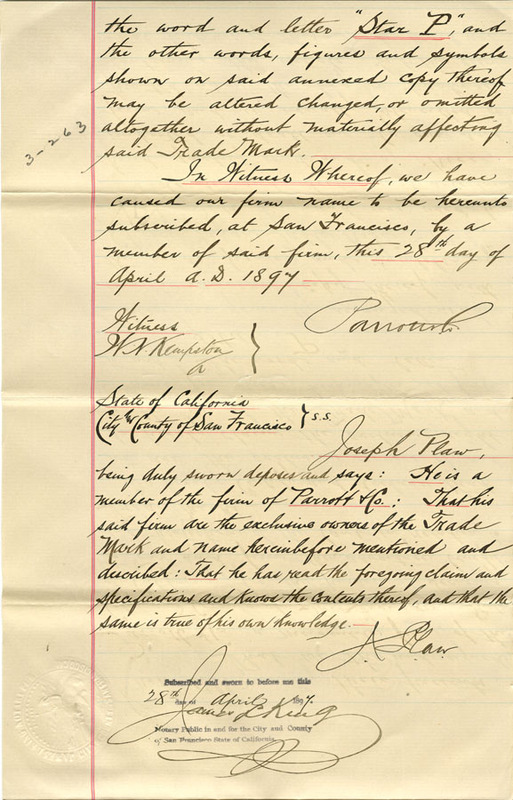 the word and letter "Star P", and
the other words, figures and symbols
shown on said annexed copy thereof
may be altered changed, or omitted
altogether without materially affecting
said Trade Mark.
3-263
In Witness Whereof, we have
caused our firm name to be hereunto
subscribed, at San Francisco, by a
member of said firm, this 28th day of
April A.D. 1897
Parrott & Co.
Witness
W. N. Kempston
State of California
City & County of San Francisco } S.S.
Joseph Plaw,
being duly sworn deposes and says: He is a
member of the firm of Parrott & Co.: That his
said firm are the exclusive owners of the Trade
Mark and name hereinbefore mentioned and
described: That he has read the foregoing claim and
specifications and knows the contents thereof, and that the
same is true of his own knowledge.
J. Plaw
Subscribed and sworn to before me this
28th day of April 1897.
James L. King
Notary Public in and for the City and County
of San Francisco State of California